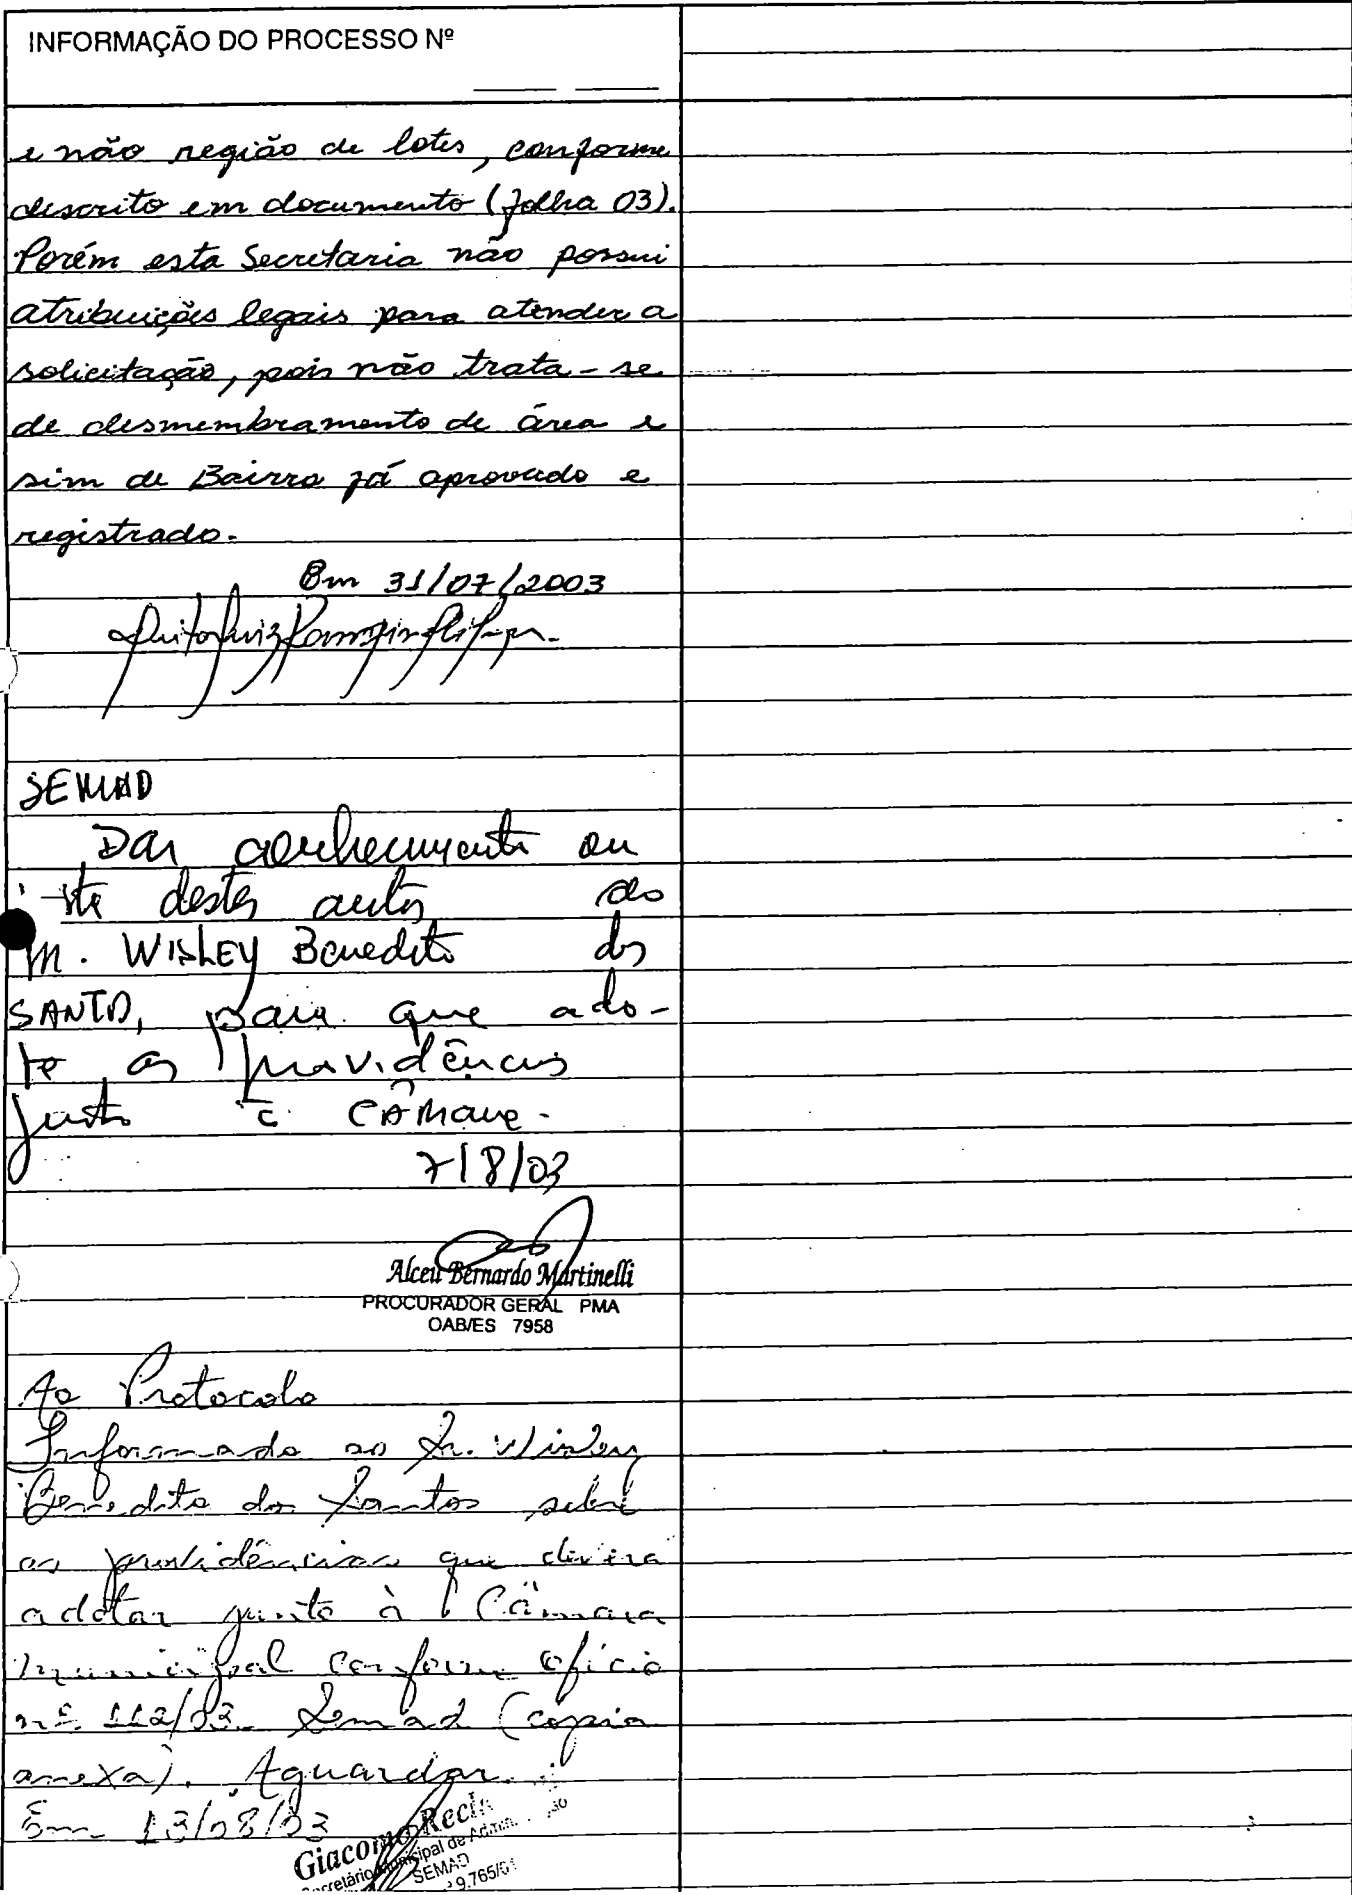 INFORMAÇÃO DO PROCESSO Nº
e não região de lotes, conforme
descrito em documento (folha 03).
Porém esta Secretaria não possui
atribuições legais para atender a
solicitação, pois não trata-se
de desmembramento de área e
sim de Bairro já aprovado e
registrado.
Em 31/07/2003
SEMAD
Dar conhecimento ou
destes autos ao
WISLEY Benedito dos
SANTOS, para que ado-
te as Providências
junto à CÂMARA.
7/8/03
Alceu Bernardo Martinelli
PROCURADOR GERAL PMA
OAB/ES 7958
Ao Protocolo
Informado ao Sr. Wisley
Benedito dos Santos sobre
as providências que deverá
adotar junto à Câmara
Municipal conforme Ofício
nº 112/03 Semad (cópia
anexa). Aguardar.
Em 13/08/03
Giacomo
SEMAD